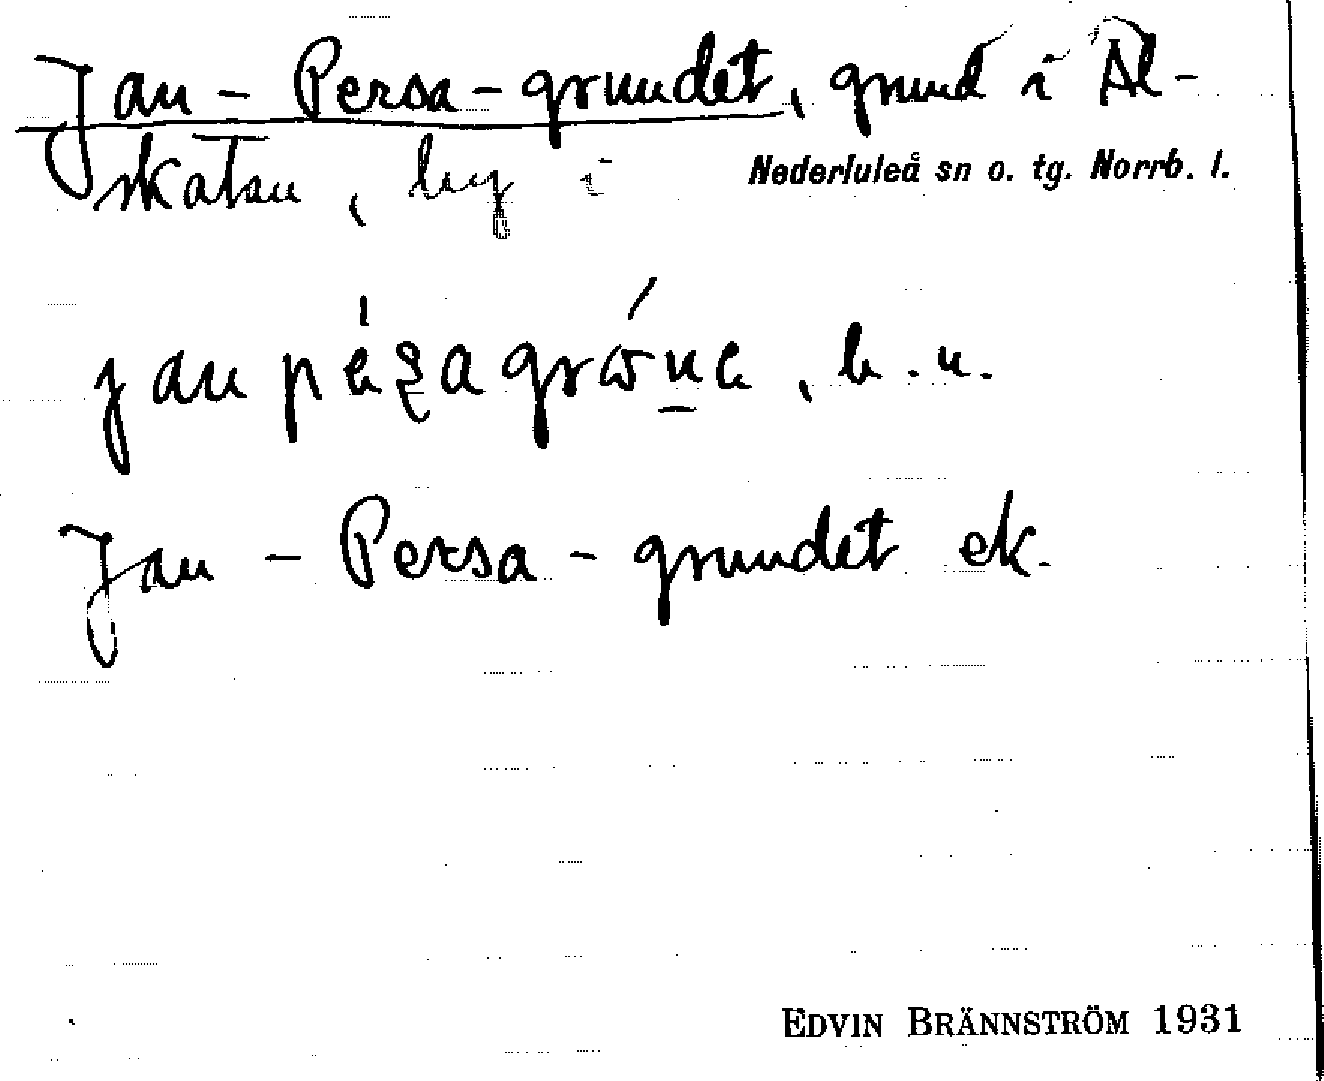 Jan-Persa-grundet, grund i Al-
skatan, by i Nederluleå sn o. tg. Norrb. l.
b. n.
Jan-Persa-grundet ek.
EDVIN BRÄNNSTRÖM 1931